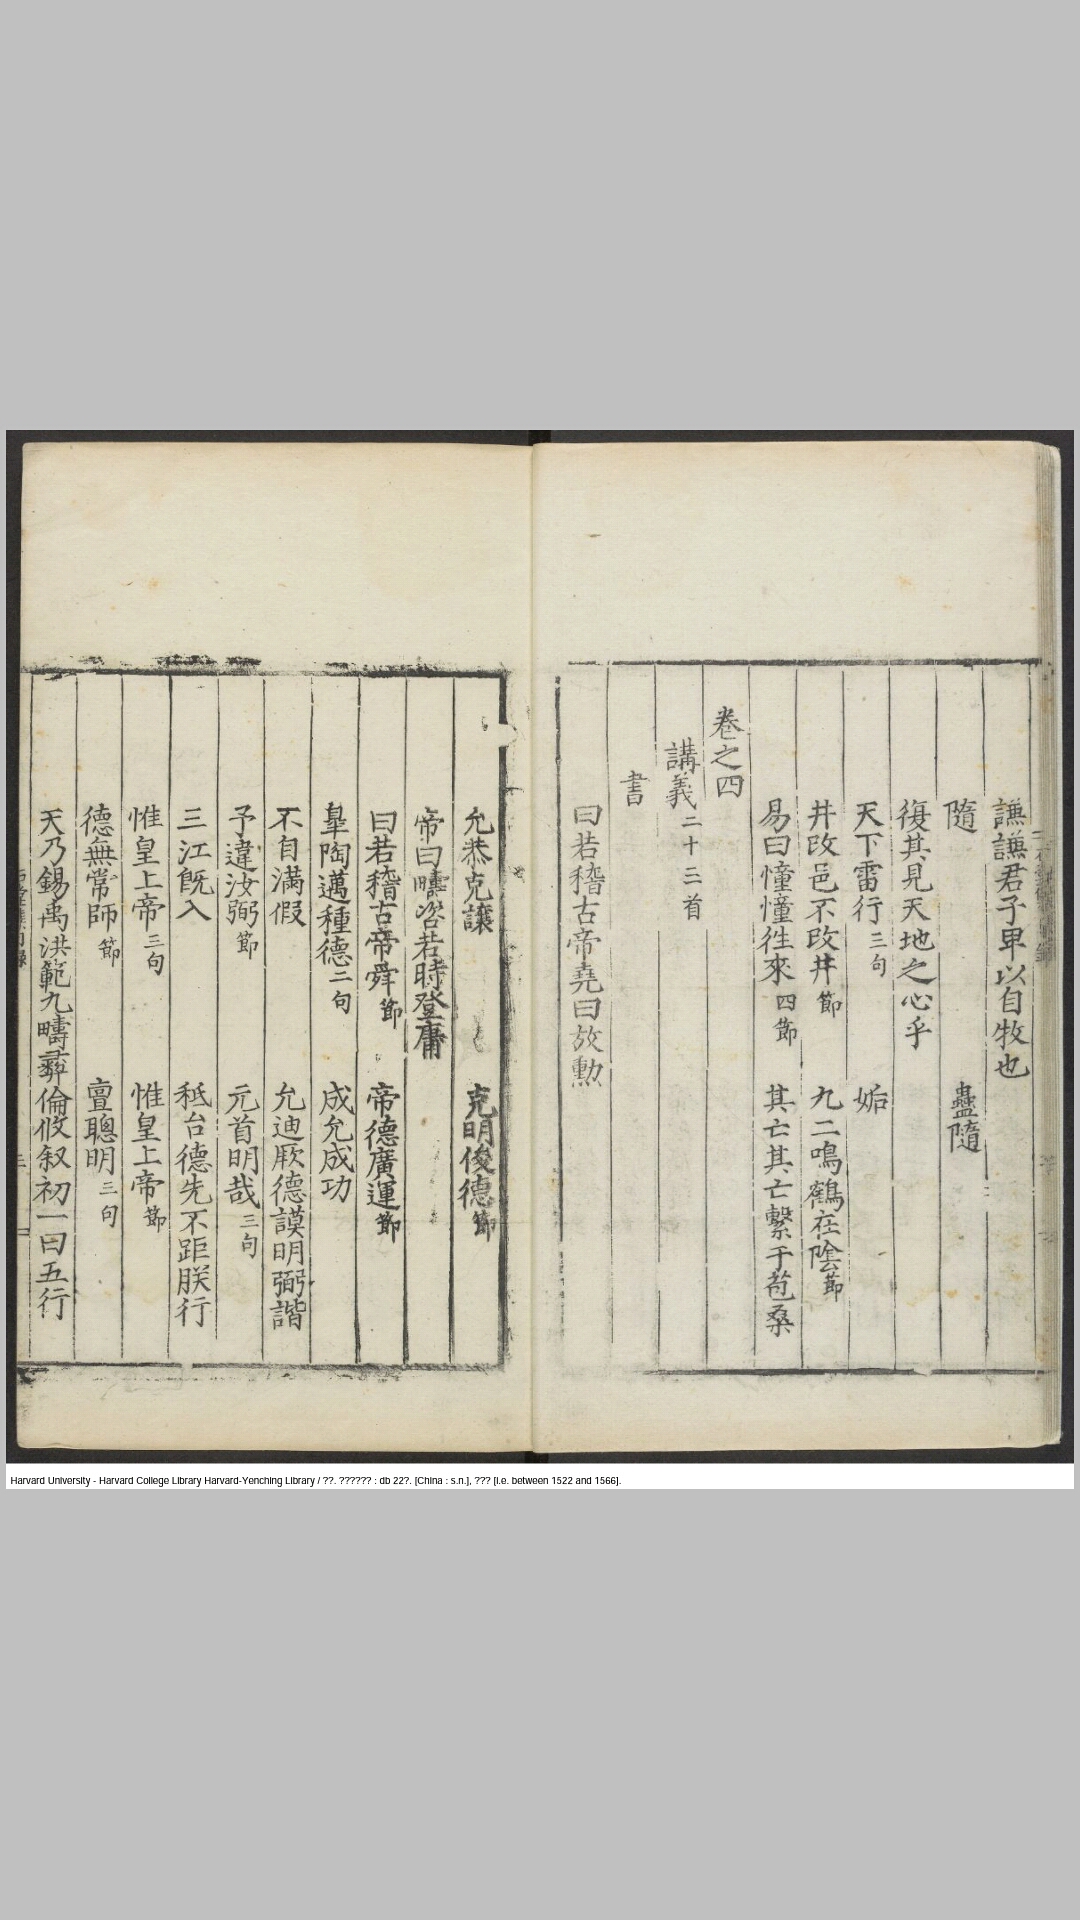 謙謙君子卑以自牧也
隨　蠱隨
復其見天地之心乎
天下雷行三句　姤
井改邑不改井節　九二鳴鶴在陰節
易曰憧憧徃來四節　其亡其亡繫于苞桑
卷之四
講義二十三首
書
曰若稽古帝堯曰放勳
允恭克讓　克明俊德節
帝曰疇咨若時登庸
曰若稽古帝舜節　帝德廣運節
臯陶邁種德二句　成允成功
不自滿假　允迪厥德謨明弼諧
予違汝弼節　元首明哉三句
三江旣入　秪台德先不距朕行
惟皇上帝三句　惟皇上帝節
德無常師節　亶聰明三句
天乃錫禹洪範九疇彝倫攸叙初一曰五行
Harvard University - Harvard College Library Harvard-Yenching Library / ??. ?????? : db 22?. [China : s.n.], ??? [i.e. between 1522 and 1566].